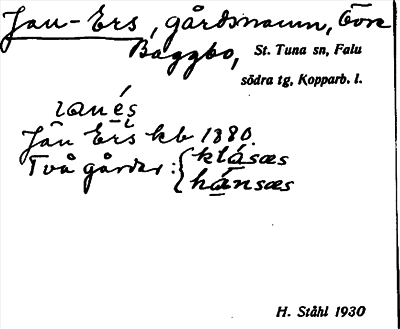 Jan-Ers, gårdsnamn, Övre
Baggbo, St. Tuna sn, Falu
södra tg, Kopparb. l.
ıanés
Jan Ers kb 1880.
Två gårdar: { klásæs
hánsæs
H. Ståhl 1930